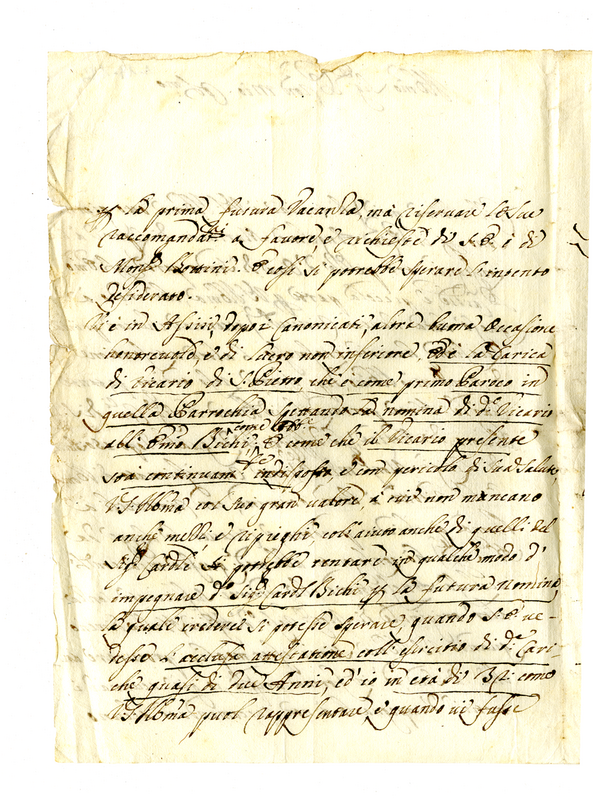 la prima futura Vacanza, mà riservare le Sue
raccomandat.ⁿⁱ a favore, e richieste di S. E. i di
Mons.ʳ Bonvini. E così si potrebbe sperare l'intento
desiderato.
Vi è in Assisi, dopo i Canonicati, altra buona occasione
honorevole e di lucro non inferiore, ed è la Carica
di Vicario di S. Pietro, che è come primo Paroco in
quella Parrochia spettando la nomina di d.º Vicario
all' Em̃o Bichi, come Abb.ᵉ E come che il Vicario presente
stà continuam.ᵗᵉ indisposto, e con pericolo di Sua Salute,
V. S. Ill̃ma col suo gran valore, à cui non mancano
anche mezzi, e ripieghi coll'aiuto anche di quelli del
Sig.ʳ Card.lè potrebbe tentare in qualche modo d'
impegnare d.º Sig.ʳ Card.l Bichi p la futura nomina,
la quale crederei si potesse sperare quando S. E. ve-
desse l'acclusa attestatione coll'esercitio di d.ª Cari-
che quasi di due Anni, ed io in età di 32: come
V. S. Ill̃ma puol rappresentare, e quando vi fusse